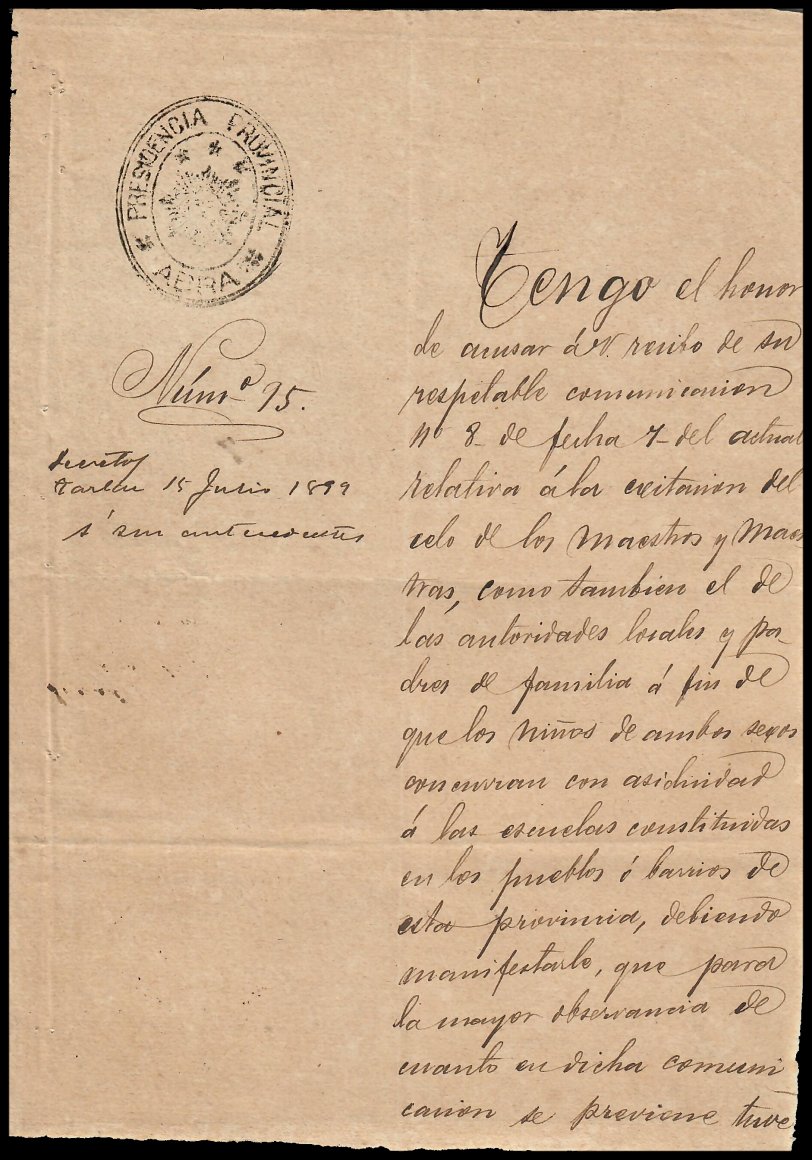 PRESIDENCIA PROVINCIAL
ABRA
Núm.º 75.
Decreto
Tarlac 15 Junio 1899
á sus antecedentes
Tengo el honor
de acusar á V. recibo de su
respetable comunicacion
Nº 8 de fecha 7 del actual
relativa á la exitacion del
celo de los Maestros y Maes
tras, como tambien el de
las autoridades locales y pa-
dres de familia á fin de
que los niños de ambos sexos
concurran con asiduidad
á las escuelas constituidas
en los pueblos ó barrios de
esta provincia, debiendo
manifestarle, que para
la mayor observancia de
cuanto en dicha comuni
cacion se previene tuve